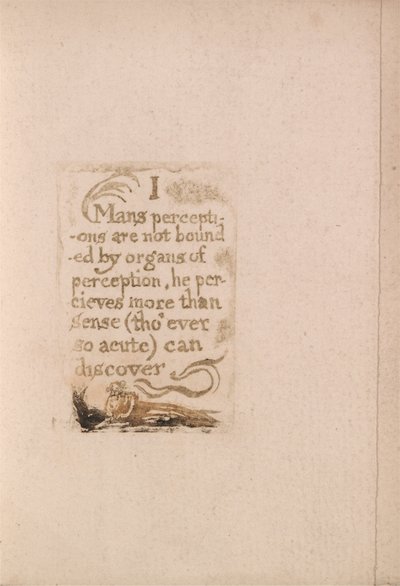 I
Mans percepti-
-ons are not bound
-ed by organs of
perception, he per-
cieves more than
sense (tho' ever
so acute) can
discover.